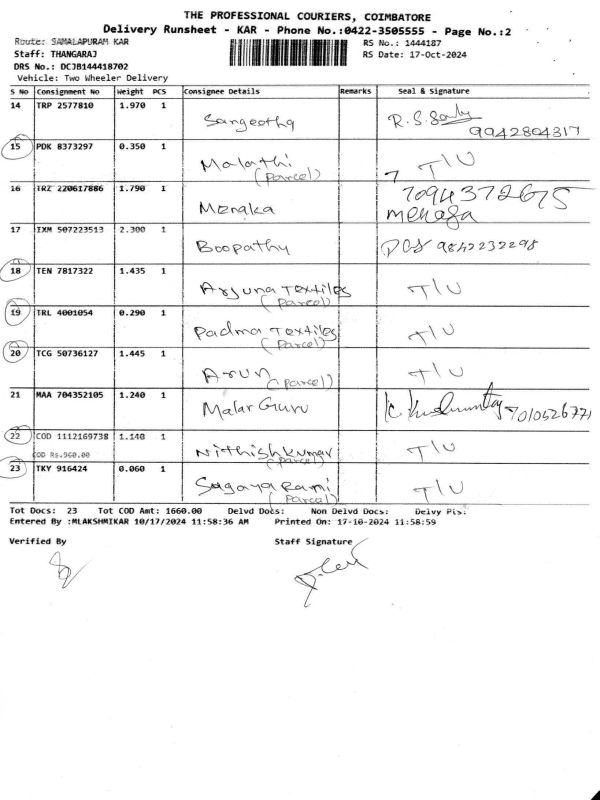 THE PROFESSIONAL COURIERS, COIMBATORE
Delivery Runsheet - KAR - Phone No.:0422-3505555 - Page No.:2
Route: SAMALAPURAM KAR RS No.: 1444187
Staff: THANGARAJ RS Date: 17-Oct-2024
DRS No.: DCJB144418702
Vehicle: Two Wheeler Delivery
S No Consignment No Weight PCS Consignee Details Remarks Seal & Signature
14 TRP 2577810 1.970 1 Sangeetha R.S. 9942804317
15 PDK 8373297 0.350 1 Malathi (Parcel) T/U
16 TRZ 220617886 1.790 1 Menaka 7094372675 menaga
17 IXM 507223513 2.300 1 Boopathy 9842232298
18 TEN 7817322 1.435 1 Arjuna Textiles (Parcel) T/U
19 TRL 4001054 0.290 1 Padma Textiles (Parcel) T/U
20 TCG 50736127 1.445 1 Arun (Parcel) T/U
21 MAA 704352105 1.240 1 Malar Guru K.
22 COD 1112169738 1.140 1 Nithishkumar (Parcel) T/U
COD Rs.960.00
23 TKY 916424 0.060 1 Sagaya Rani (Parcel) T/U
Tot Docs: 23 Tot COD Amt: 1660.00 Delvd Docs: Non Delvd Docs: Delvy Pis:
Entered By :MLAKSHMIKAR 10/17/2024 11:58:36 AM Printed On: 17-10-2024 11:58:59
Verified By Staff Signature